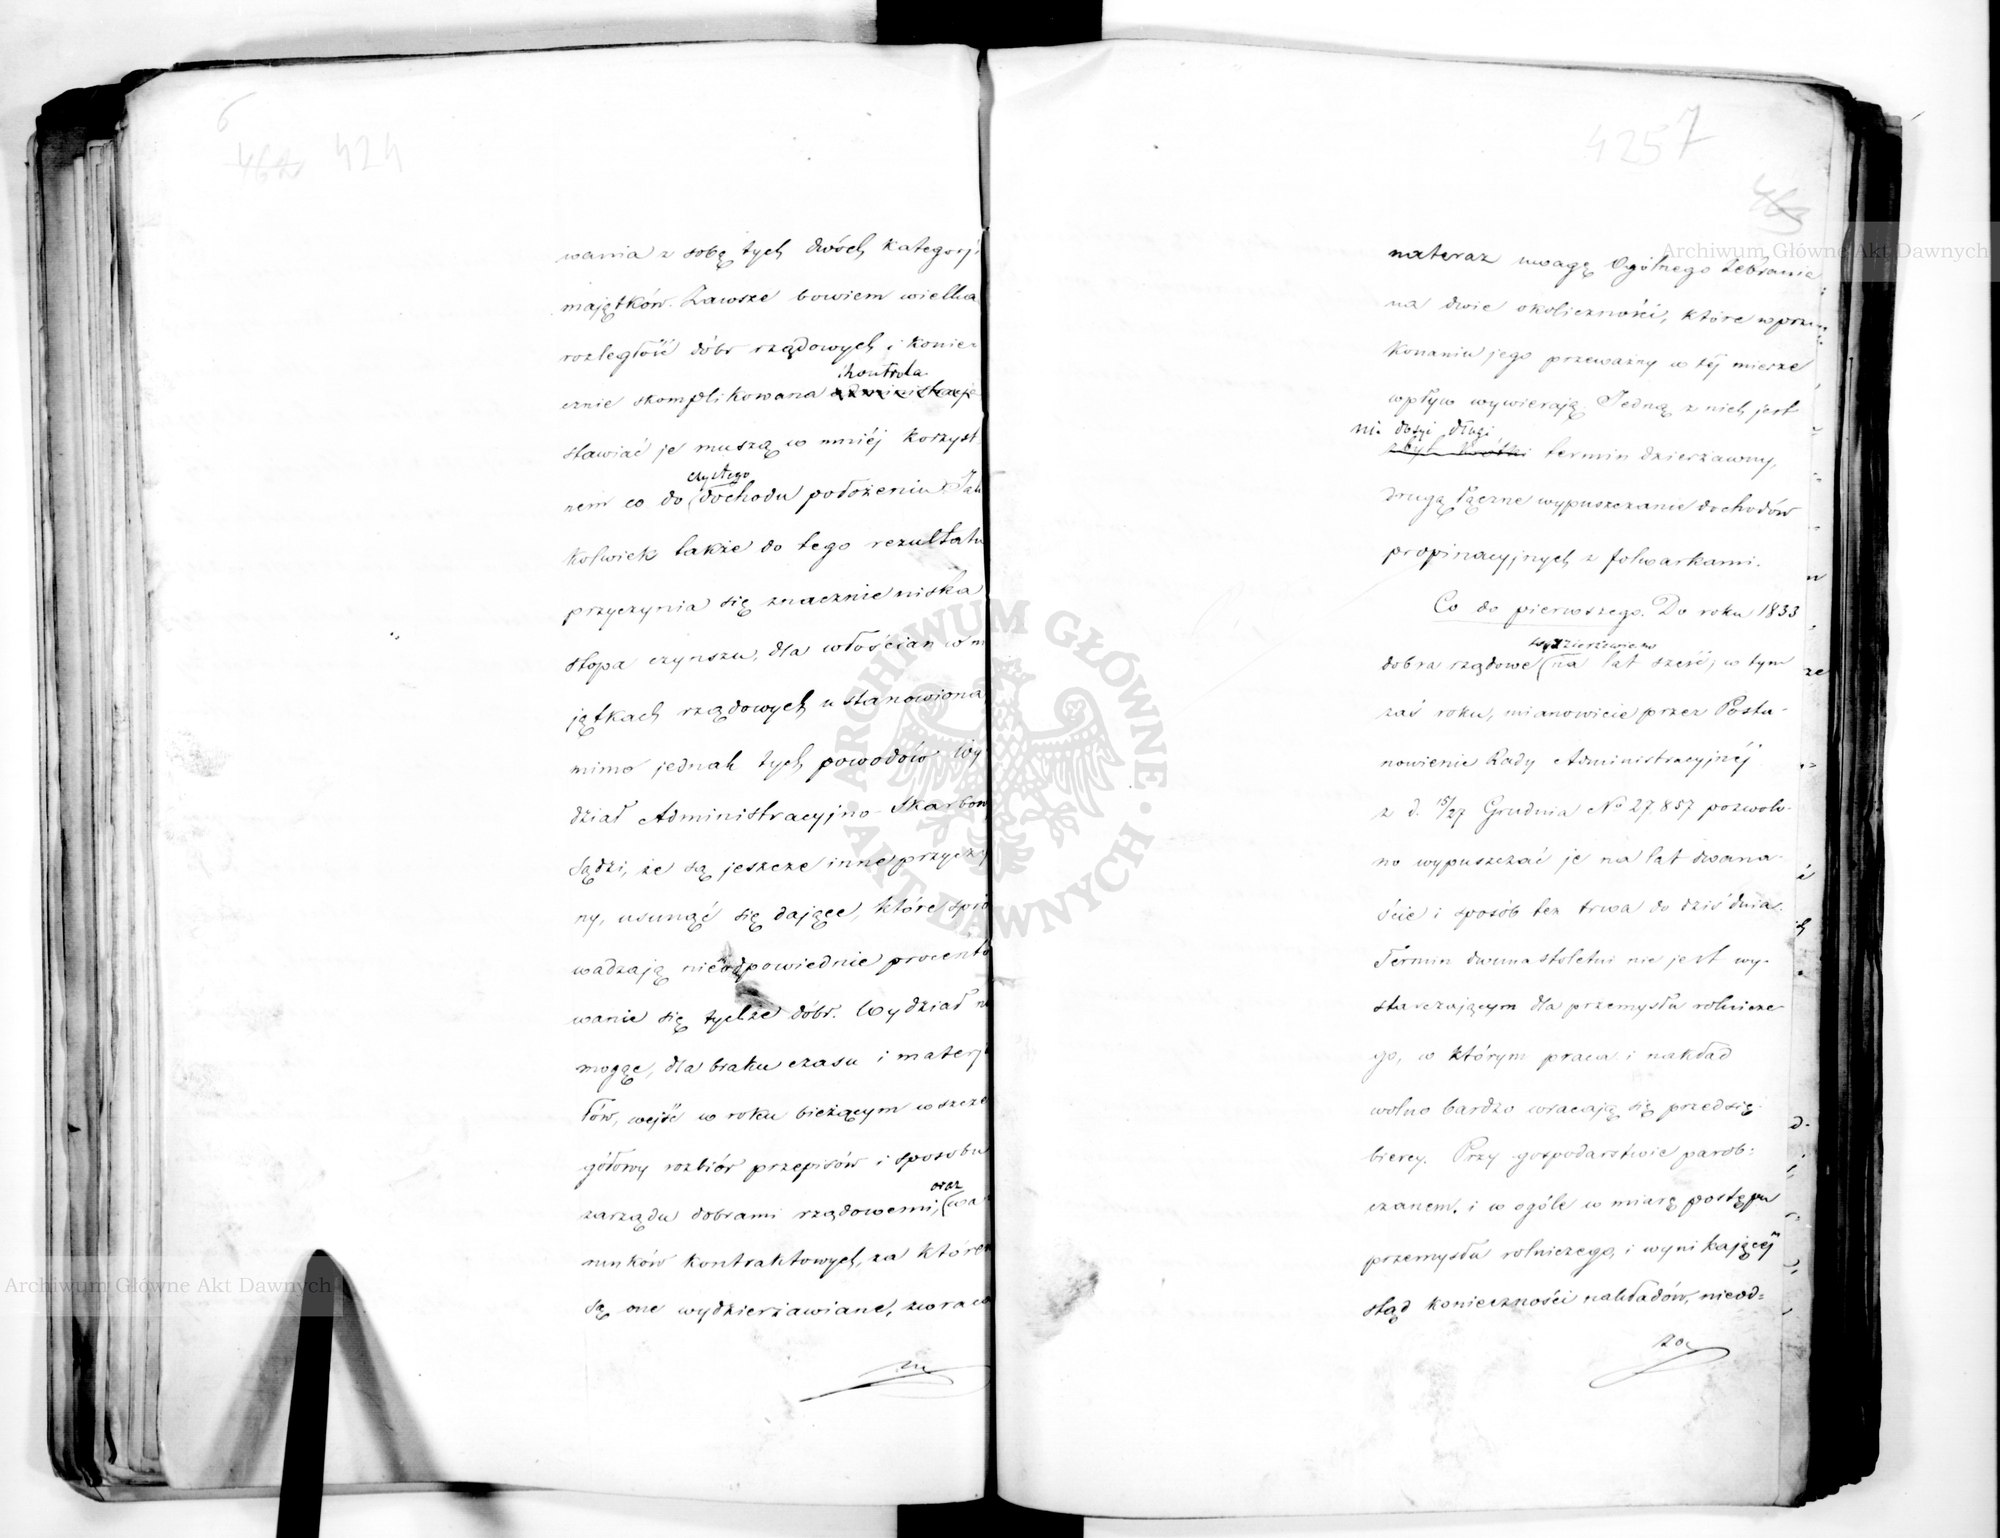 6
424
wania z sobą tych dwóch kategorji
majątków. Zawsze bowiem wielka
rozległość dóbr rządowych i koniec
kontrola
cznie skomplikowana administracja
stawiać je muszą w mniéj korzyst
czystego
nem co do dochodu położeniu Jak
kolwiek także do tego rezultatu
przyczynia się znacznie niska
stopa czynszu, dla włościan w m
jątkach rządowych ustanowiona,
mimo jednak tych powodów Wy
dział Administracyjno-Skarbow
sądzi, że są jeszcze inne przyczy
ny, usunąć się dające, które spro
wadzają nieodpowiednie procento
wanie się tychże dóbr. Wydział n
mogąc, dla braku czasu i materj
łów, wejść w roku bieżącym w szcze
gółowy rozbiór przepisów i sposobu
oraz
zarządu dobrami rządowemi, (wa
runków kontraktowych, za które
są one wydzierżawiane, zwraca
na
4257
nateraz uwagę Ogólnego Zebrania
na dwie okoliczności, które w prze
konaniu jego przeważny w téj mierze
wpływ wywierają. Jedną z nich jest
nie dosyć długi
zbyt krótki termin dzierżawny,
drugą łączne wypuszczanie dochodów
propinacyjnych z folwarkami.
Co do pierwszego. Do roku 1833
wydzierżawiano
dobra rządowe (na lat sześć; w tym
zaś roku, mianowicie przez Posta-
nowienie Rady Administracyjnéj
z d. 15/27 Grudnia No 27.857 pozwolo-
no wypuszczać je na lat dwana-
ście i sposób ten trwa do dziś dnia.
Termin dwunastoletni nie jest wy-
starczającym dla przemysłu rolnicze-
go, w którym praca i nakład
wolno bardzo wracają się przedsię-
biercy. Przy gospodarstwie parob:
czanem, i w ogóle w miarę postępu
przemysłu rolniczego, i wynikającéj
stąd konieczności nakładów, nieod=
zo
Archiwum Główne Akt Dawnych
Archiwum Główne Akt Dawnych
ARCHIWUM GŁÓWNE · AKT DAWNYCH ·